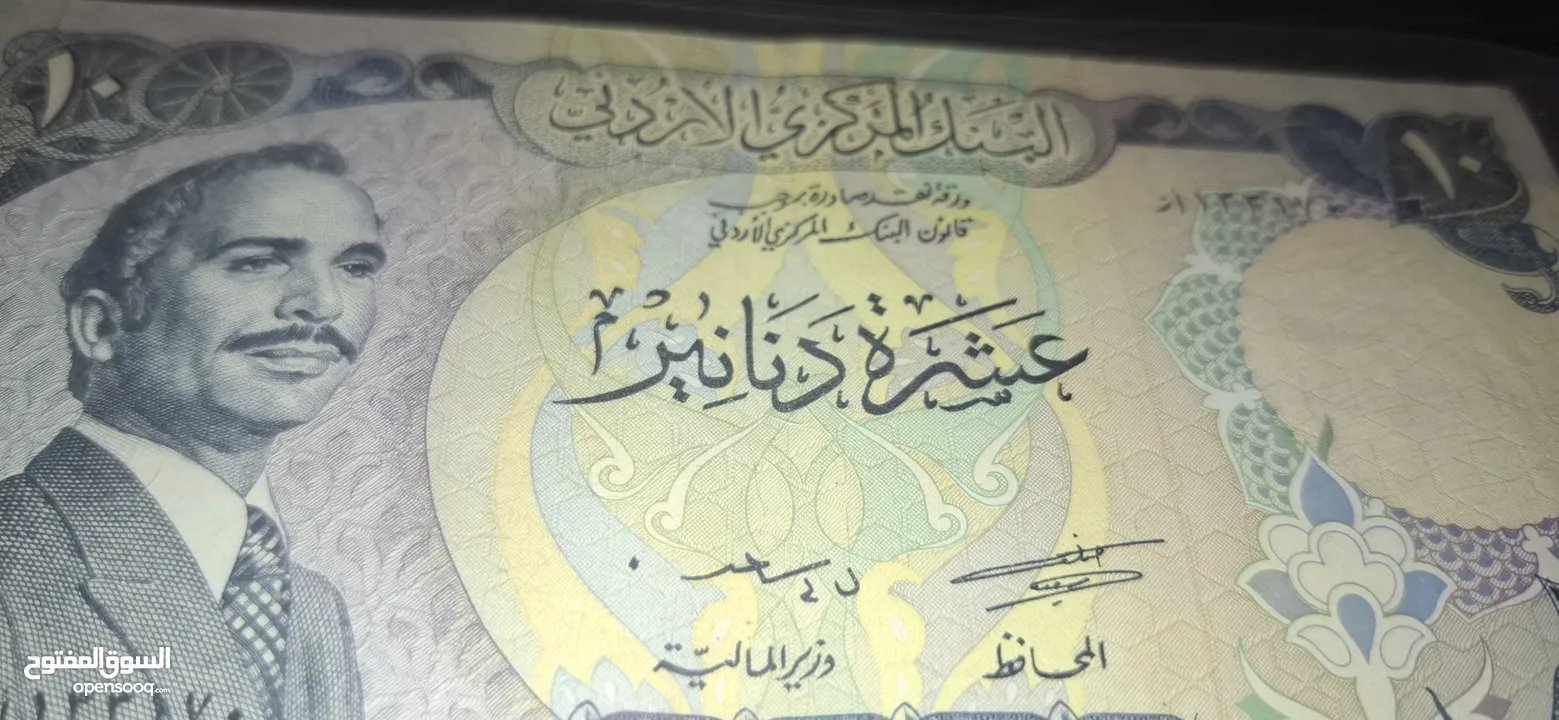 ١٠
١٠
البنك المركزي الأردني
ورقة نقد صادرة بموجب
قانون البنك المركزي الأردني
عشرة دنانير
وزير المالية
المحافظ
السوق المفتوح
opensooq.com